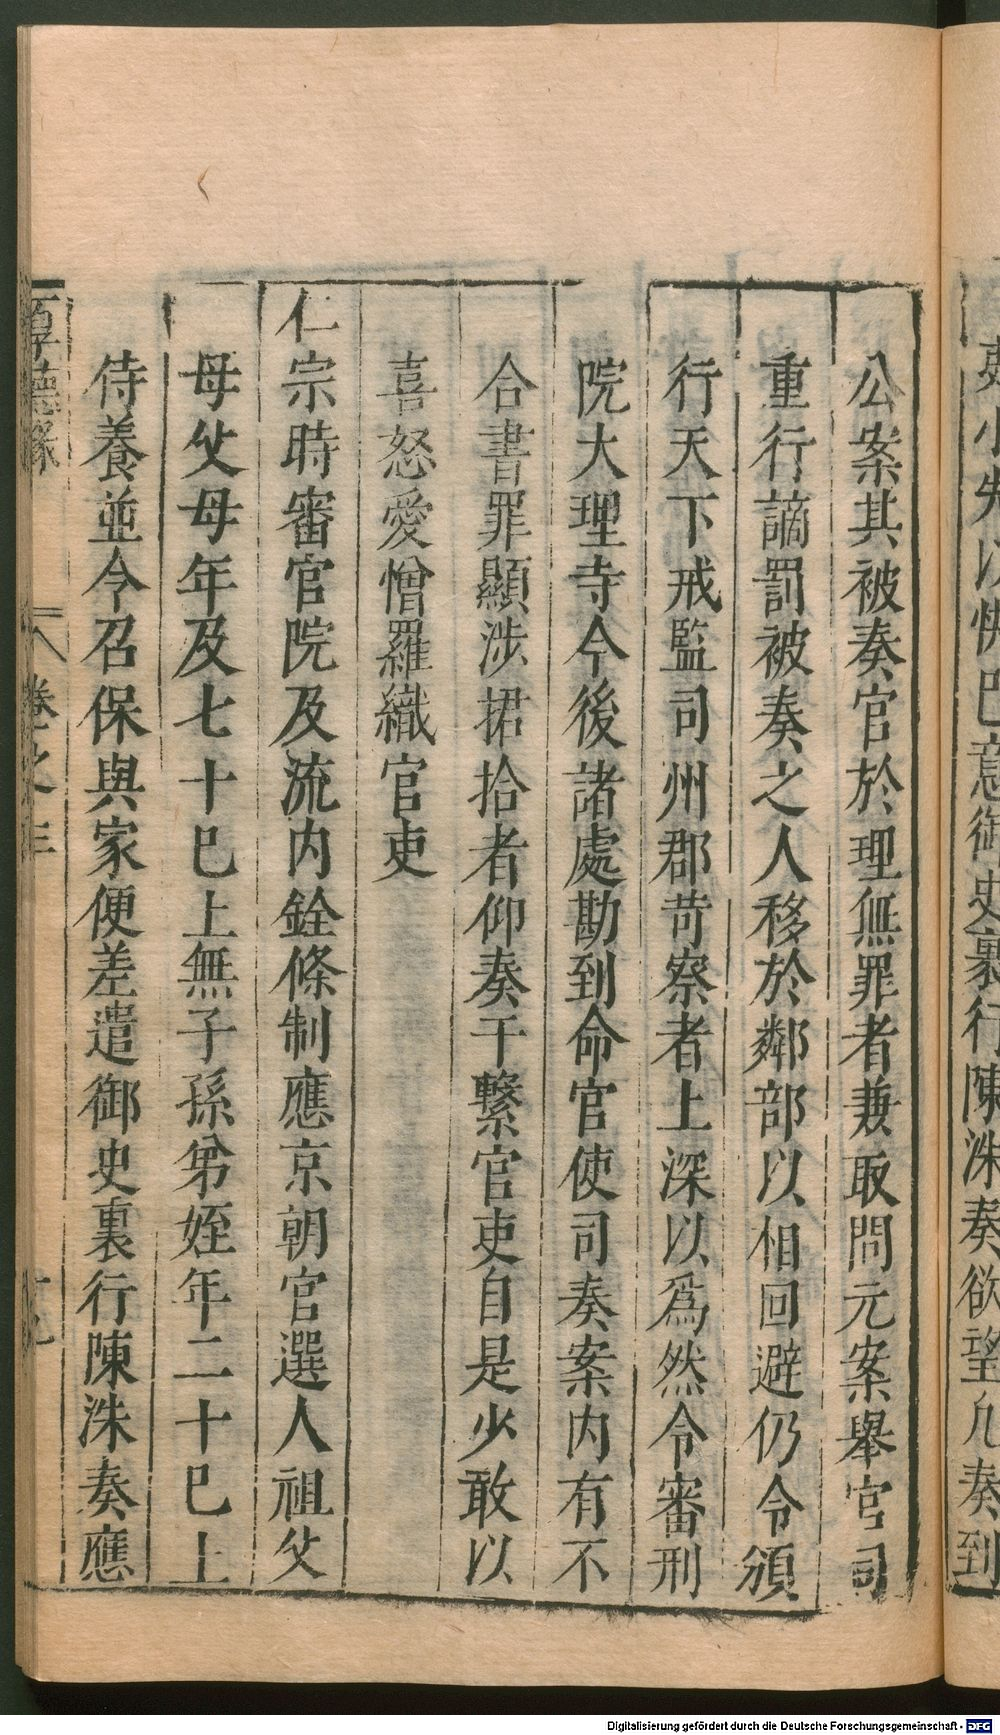 公案其被奏官於理無罪者兼取問元案舉官司
重行謫罰被奏之人移於鄰部以相回避仍令頒
行天下戒監司州郡苛察者上深以爲然令審刑
院大理寺今後諸處勘到命官使司奏案内有不
合書罪顯涉捃拾者仰奏干繫官吏自是少敢以
喜怒愛憎羅織官吏
仁宗時審官院及流内銓條制應京朝官選人祖父
母父母年及七十巳上無子孫弟姪年二十巳上
侍養並令召保與家便差遣御史裏行陳洙奏應
厚德錄
卷之三
十九
以 巳意御史裏行陳洙奏欲望允奏到
Digitalisierung gefördert durch die Deutsche Forschungsgemeinschaft - DFG